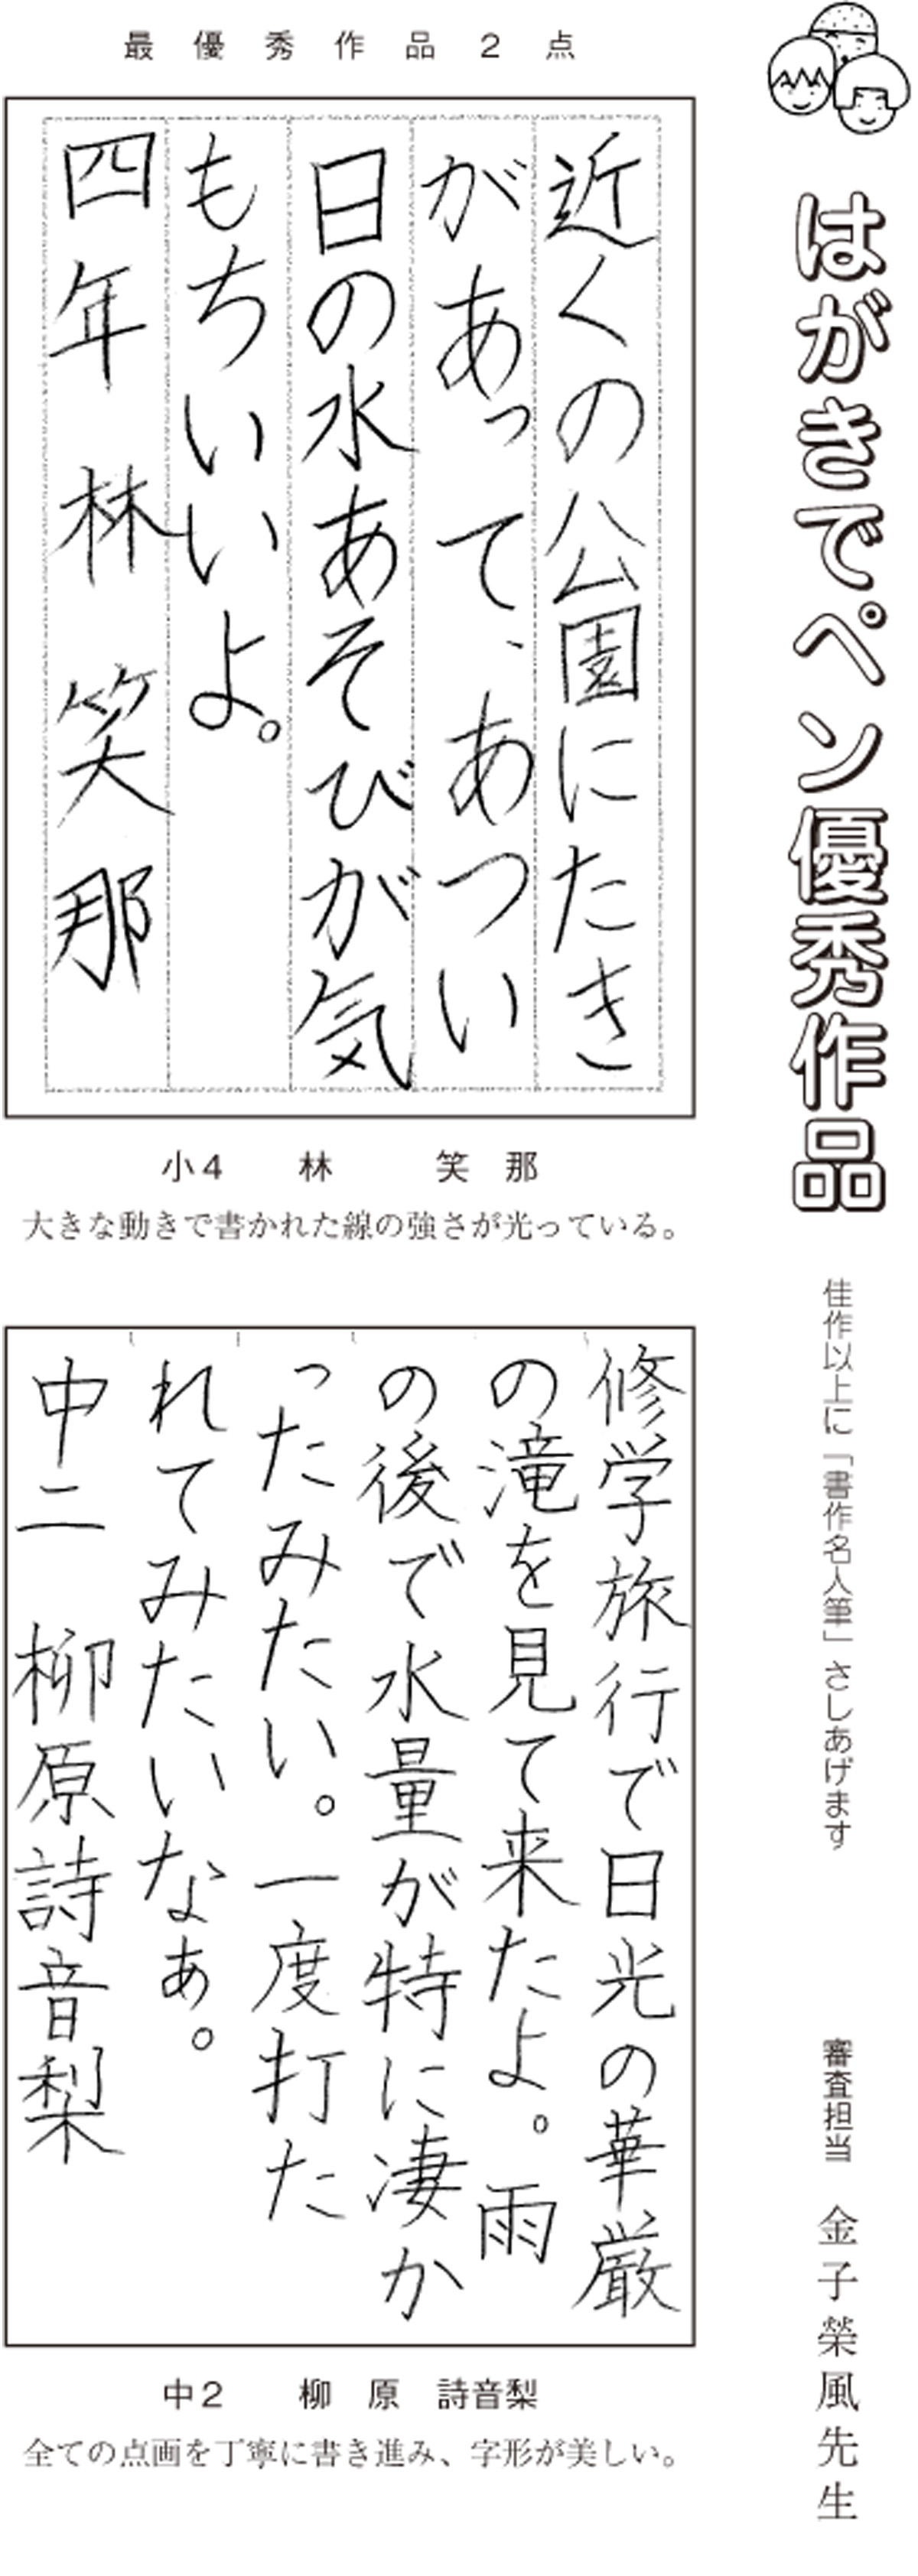 はがきでペン優秀作品
佳作以上に「書作名人筆」さしあげます
審査担当 金子榮風先生
最優秀作品2点
近くの公園にたき
があって、あつい
日の水あそびが気
もちいいよ。
四年 林 笑那
小4 林 笑那
大きな動きで書かれた線の強さが光っている。
修学旅行で日光の華厳
の滝を見て来たよ。雨
の後で水量が特に凄か
ったみたい。一度打た
れてみたいなぁ。
中二 柳原詩音梨
中2 柳原 詩音梨
全ての点画を丁寧に書き進み、字形が美しい。